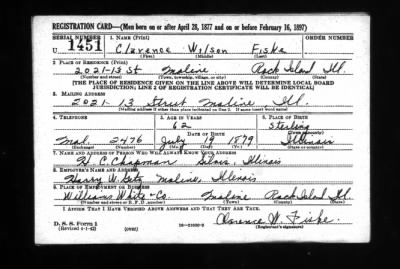 REGISTRATION CARD—(Men born on or after April 28, 1877 and on or before February 16, 1897)
SERIAL NUMBER 1. NAME (Print) ORDER NUMBER
U 1451 Clarence Wilson Fiske
(First) (Middle) (Last)
2. PLACE OF RESIDENCE (Print)
2021-13 St Moline Rock Island Ill.
(Number and street) (Town, township, village, or city) (County) (State)
[THE PLACE OF RESIDENCE GIVEN ON THE LINE ABOVE WILL DETERMINE LOCAL BOARD
JURISDICTION; LINE 2 OF REGISTRATION CERTIFICATE WILL BE IDENTICAL]
3. MAILING ADDRESS
2021-13 Street Moline Ill.
[Mailing address if other than place indicated on line 2. If same insert word same]
4. TELEPHONE 5. AGE IN YEARS 6. PLACE OF BIRTH
62 Sterling
DATE OF BIRTH (Town or county)
Mol. 2476 July 19 1879 Illinois
(Exchange) (Number) (Mo.) (Day) (Yr.) (State or country)
7. NAME AND ADDRESS OF PERSON WHO WILL ALWAYS KNOW YOUR ADDRESS
H. C. Chapman Illinois
8. EMPLOYER'S NAME AND ADDRESS
Harry W. Moline, Illinois
9. PLACE OF EMPLOYMENT OR BUSINESS
Williams White & Co. Moline Rock Island Ill.
(Number and street or R. F. D. number) (Town) (County) (State)
I AFFIRM THAT I HAVE VERIFIED ABOVE ANSWERS AND THAT THEY ARE TRUE.
D. S. S. Form 1
(Revised 4-1-42) (over) Clarence W. Fiske.
(Registrant's signature)